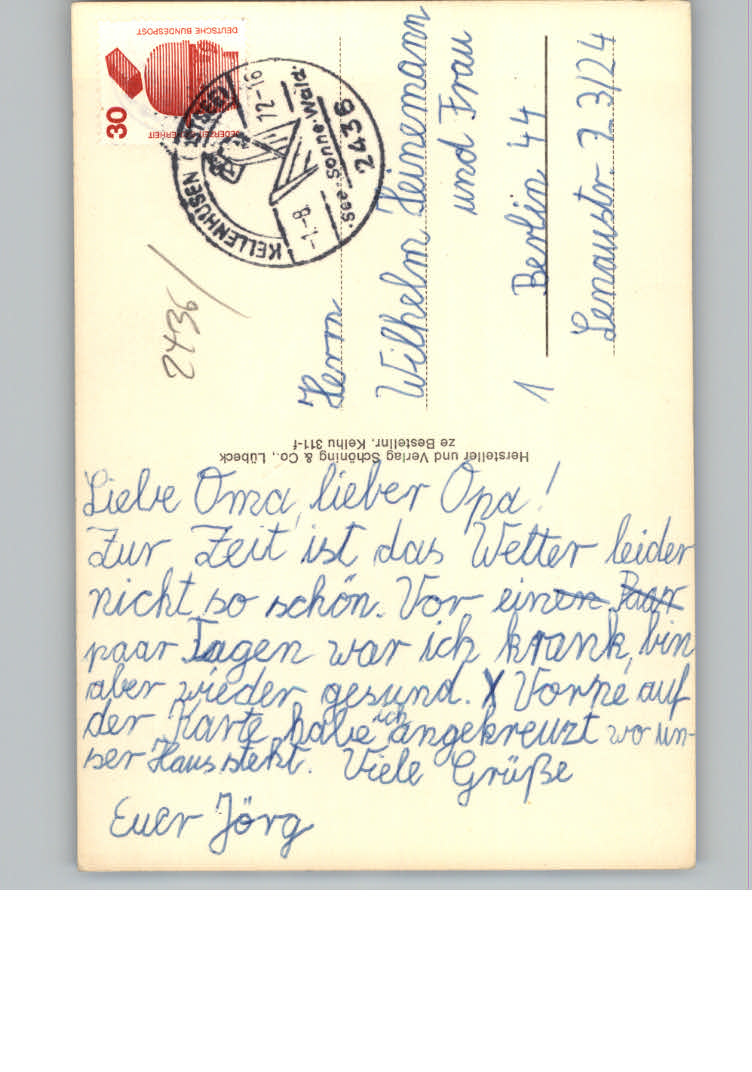 DEUTSCHE BUNDESPOST
JEDERZEIT SICHERHEIT
30
KELLENHUSEN
-1.-8. 72-16
See·Sonne·Wald·
2436
2436
Herrn
Wilhelm Heinemann
und Frau
1 Berlin 44
Lenaustr. 23/24
Hersteller und Verlag Schöning & Co., Lübeck
ze Bestellnr. Kelhu 311-f
Liebe Oma, lieber Opa!
Zur Zeit ist das Wetter leider
nicht so schön. Vor einen Paar
paar Tagen war ich krank, bin
aber wieder gesund. X Vorne auf
der Karte habe ich angekreuzt wo un-
ser Haus steht. Viele Grüße
Euer Jörg